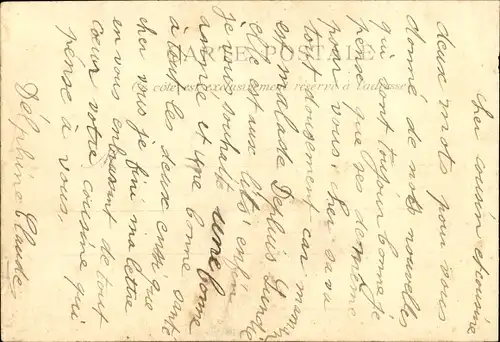 CARTE POSTALE
Ce côté est exclusivement réservé à l'adresse
cher cousin et cousine
deux mots pour vous
donné de nots nouvelles
qui sont toujour bonne je
pense que ses de même
pour vous cher sa va
tout dousement car maman
est malade Depluis Lundi
elle est aux lits enfin
je vous souhaite une bonne
année et une bonne santé
à tout les deux ensi que
cher vous je fini ma lettre
en vous enbrassant de tout
cœur votre cousine qui
pense à vous
Delphine Claude